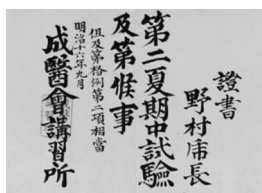 證書
野村庯長
第二夏期中試驗
及第候事
但及第格例第二項相當
明治十六年九月
成醫會講習所